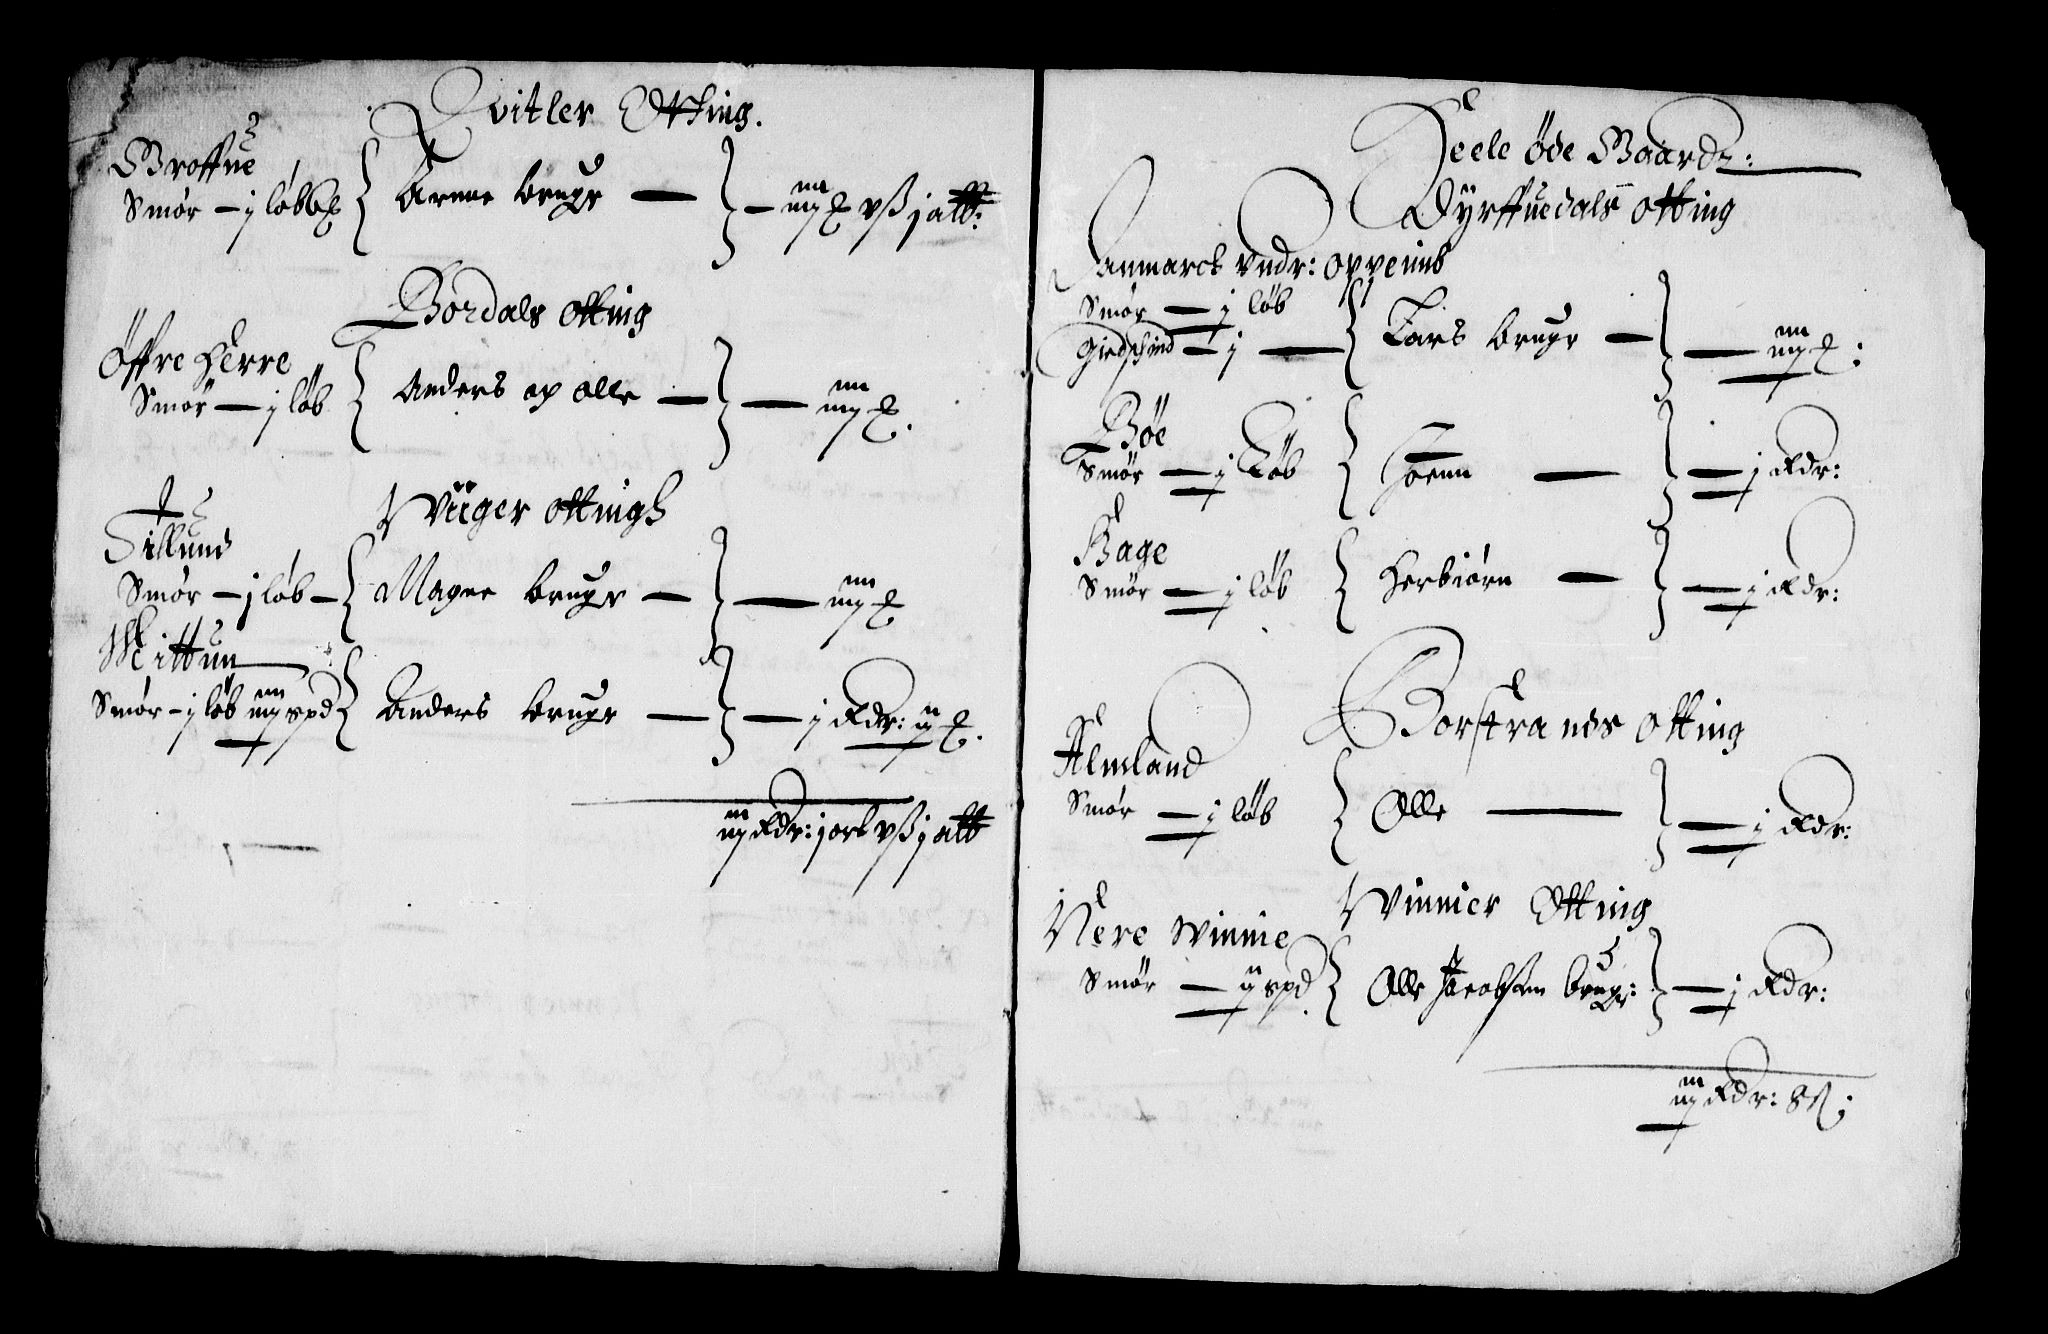 Qvitler Otting.
Groffue
Smør – j løb { Arnne brugr – }
Bordals otting
Öffre Herre
Smör – j löb { Anders op alle – } – iiij
Wiiger ottingh
Tillund
Smör – j löb – { Magne brugr – } – iiij
Mittun
Smör – j löb iiij spd { Anders brugr – } – j Rdr: ij
iiij Rdr: j ort vß j alb
Heele öde Gaardr:
Dÿrffuedals otting
Danmarck vndr: oppeimb
Smör – j löb
Giedschind – j – { Lars brugr – } – iiij
Böe
Smör – j Löb { – } – j Rdr:
Hage
Smör – j löb { Herbiörn – } – j Rdr:
Borstrands otting
Almeland
Smör – j löb { Olle – } – j Rdr:
Winnier Otting
Nere Winnie
Smör – ij spd { Olle Jacobsen brugr: } – j Rdr:
iiij Rdr: 8ß;